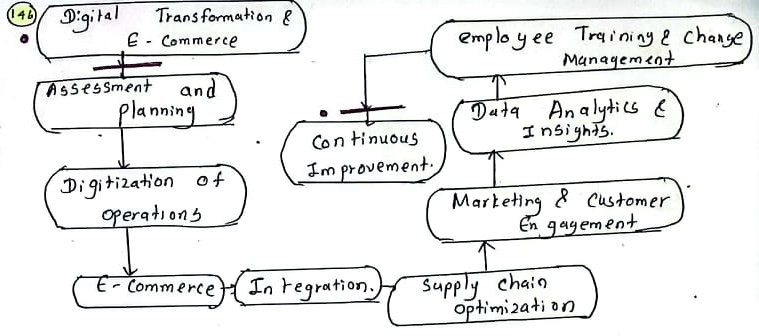 146
Digital Transformation &
E - Commerce
Assessment and
planning
Digitization of
operations
E - Commerce
Integration.
Supply chain
optimization
Marketing & Customer
Engagement
Data Analytics &
Insights.
employee Training & Change
Management
Continuous
Improvement.